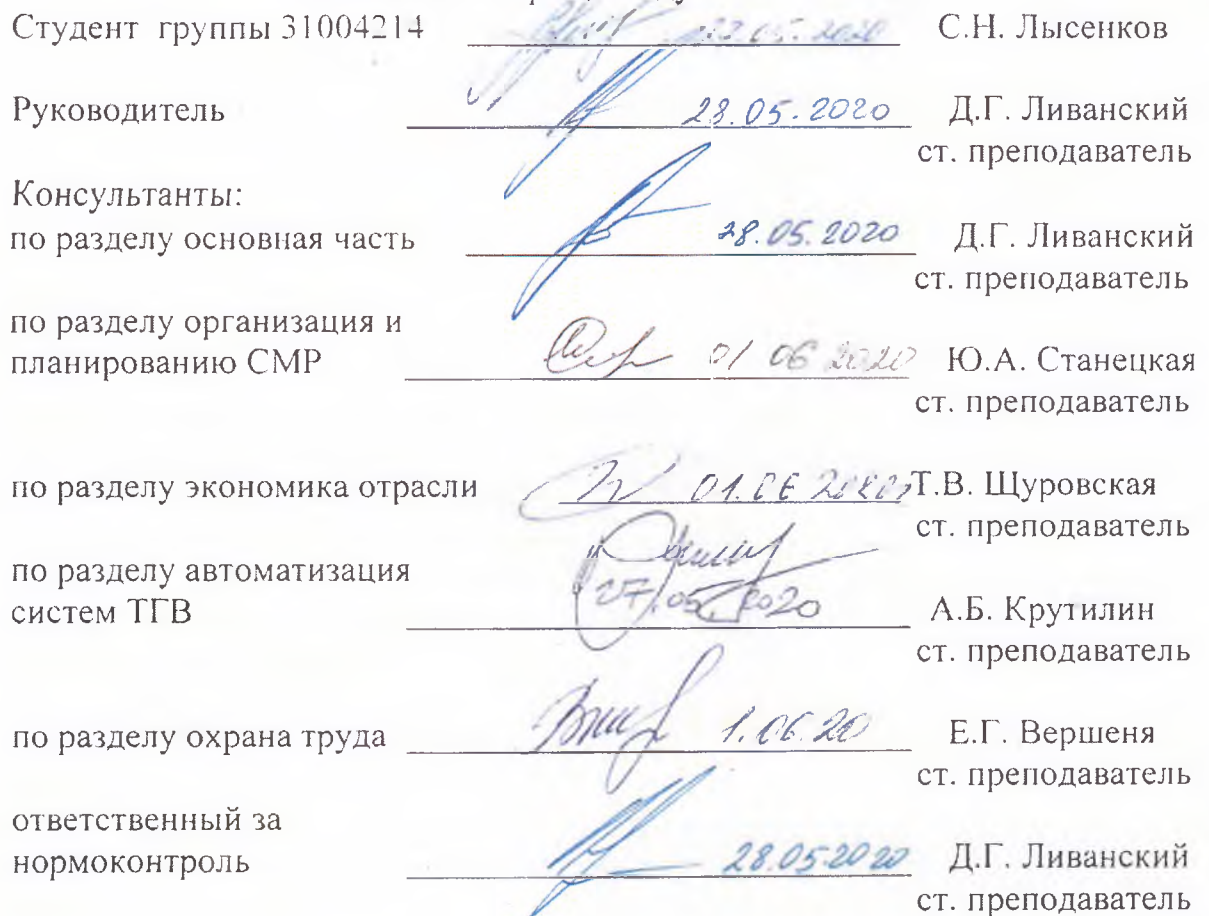 Студент группы 31004214 22.05.2020 С.Н. Лысенков
Руководитель 28.05.2020 Д.Г. Ливанский
ст. преподаватель
Консультанты:
по разделу основная часть 28.05.2020 Д.Г. Ливанский
ст. преподаватель
по разделу организация и
планированию СМР 01 06 2020 Ю.А. Станецкая
ст. преподаватель
по разделу экономика отрасли 01.06 2020 Т.В. Щуровская
ст. преподаватель
по разделу автоматизация
систем ТГВ 27.05.2020 А.Б. Крутилин
ст. преподаватель
по разделу охрана труда 1.06.20 Е.Г. Вершеня
ст. преподаватель
ответственный за
нормоконтроль 28.05.2020 Д.Г. Ливанский
ст. преподаватель